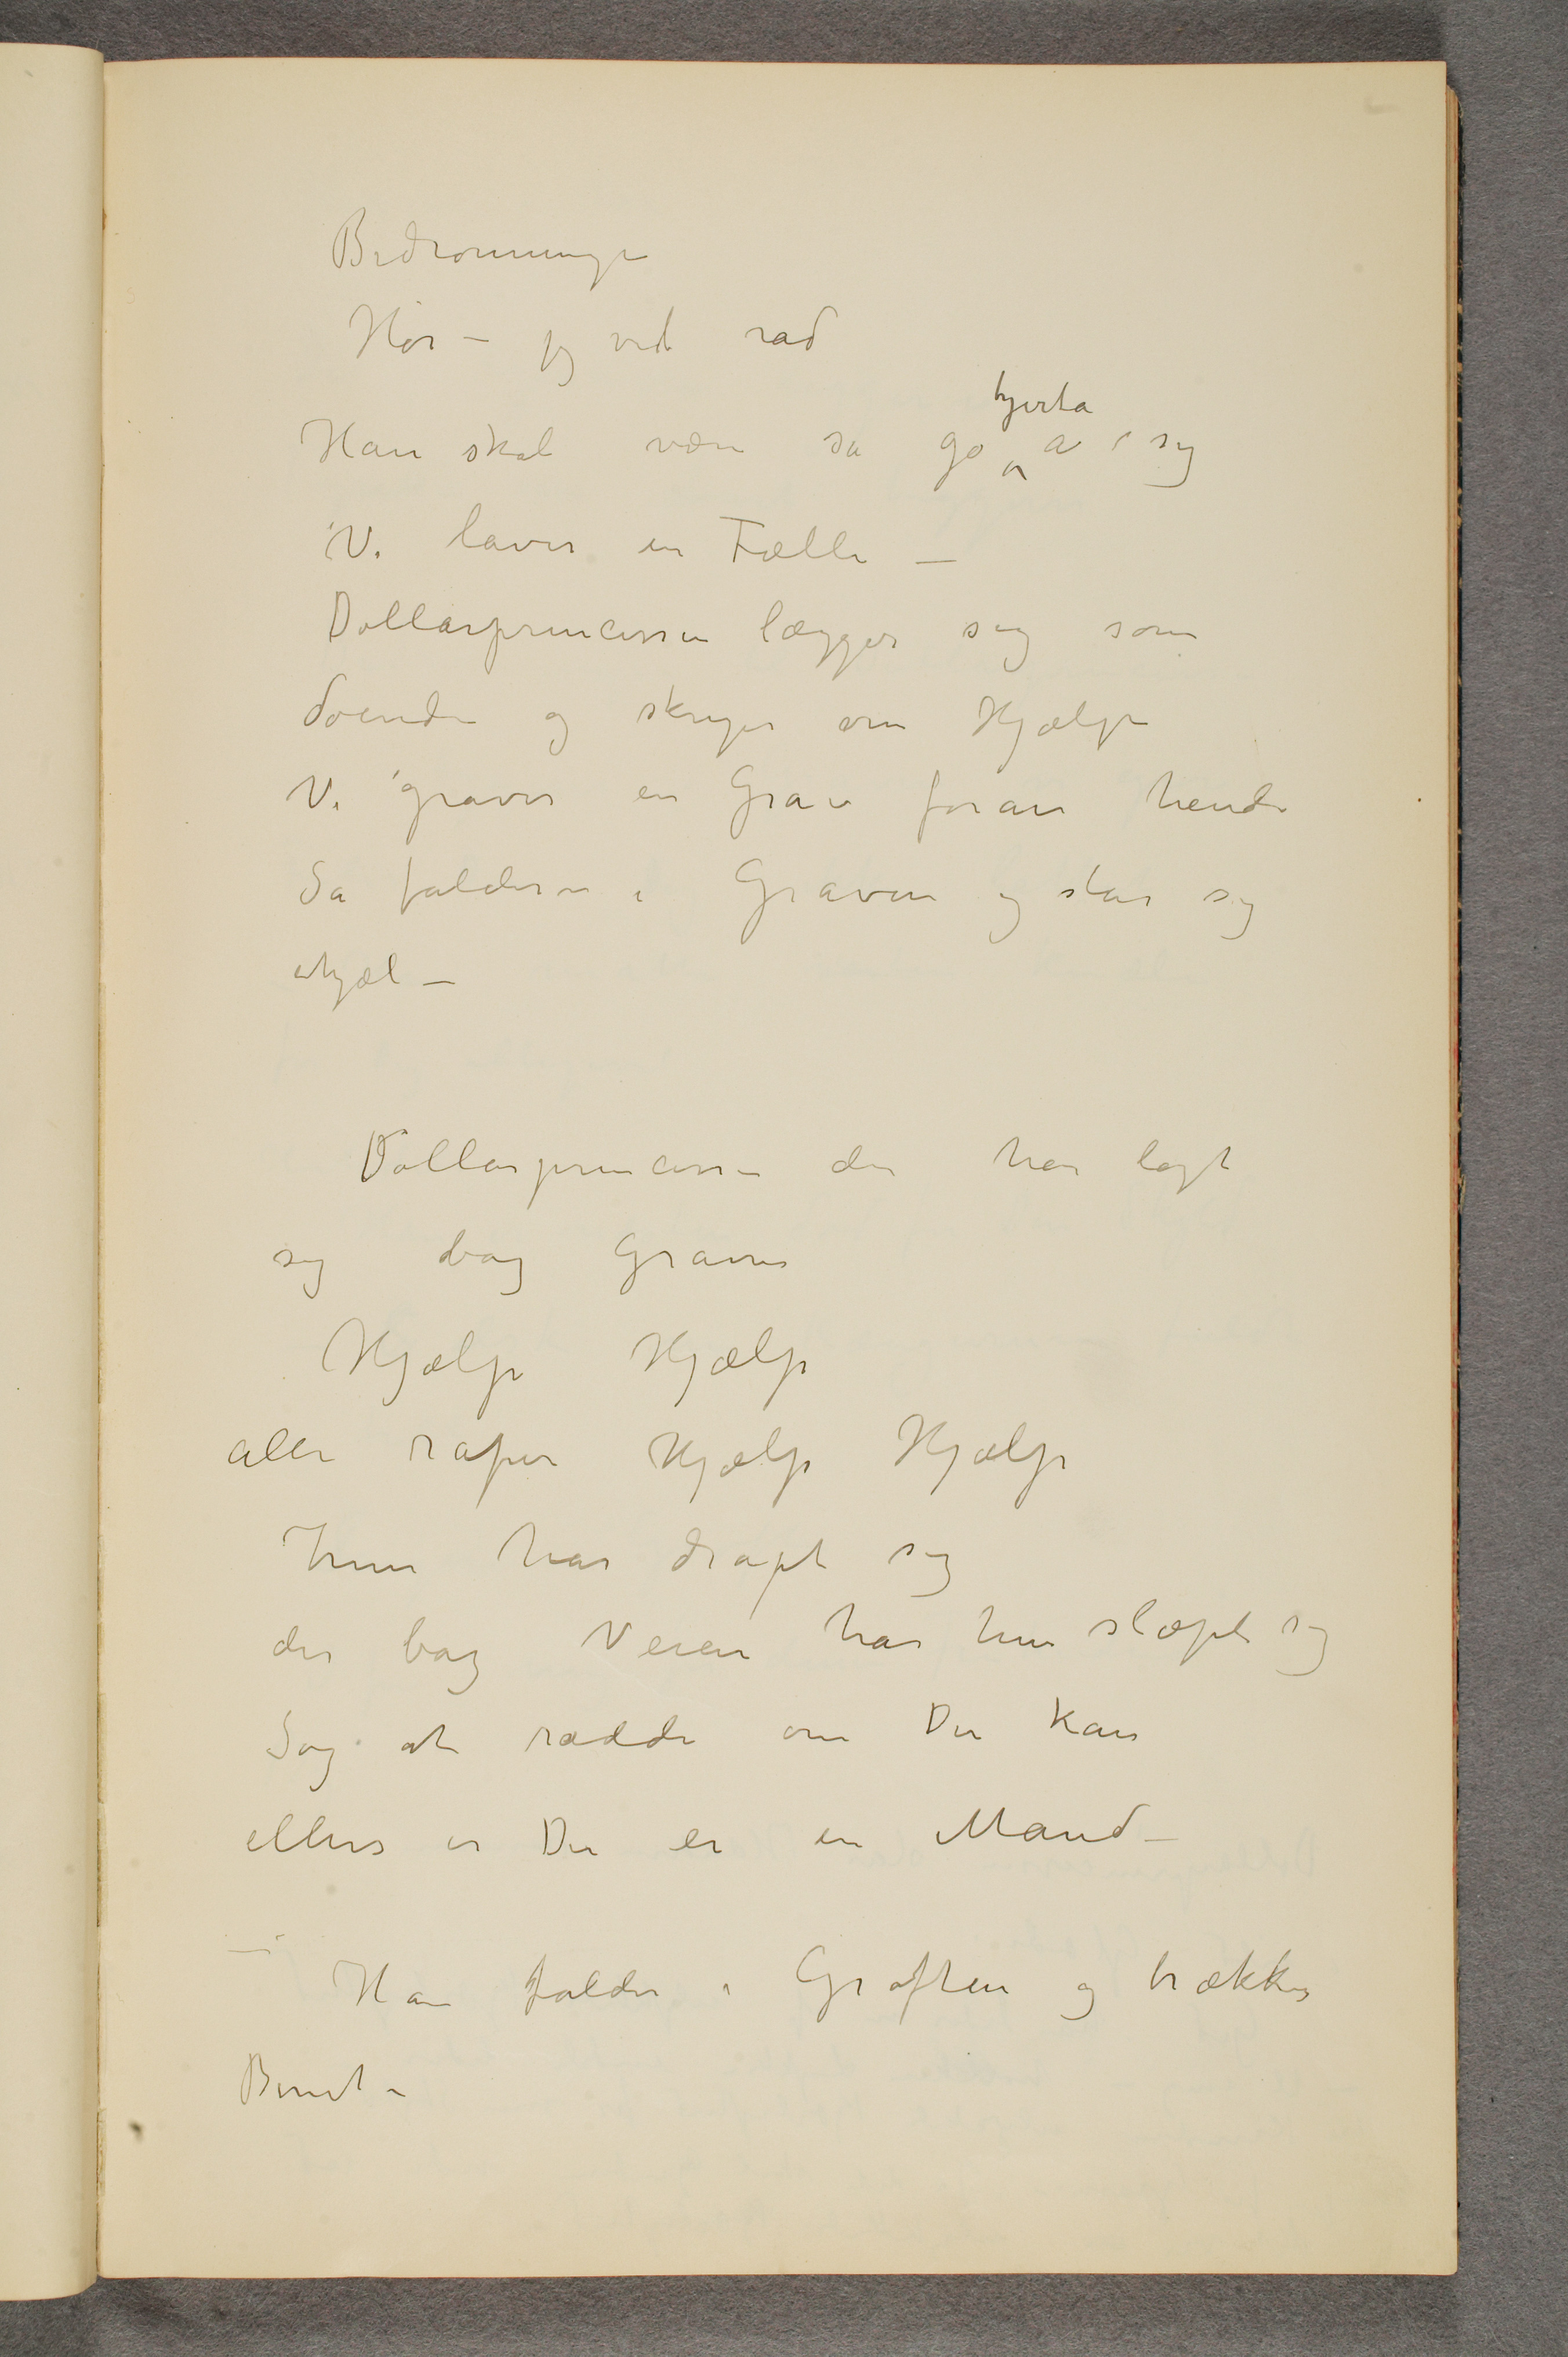 Bedronninge
Hør – jeg ved råd
Han skal være så go hjerta a sig
Vi laver en Fælle –
Dollarprincessen lægger sig som
døende og skriger om Hjælp
Vi graver en Grav foran hende
Så falder n i Graven og slår sig
ihjæl –
Dollarprincessen der har lagt
sig bag Graven
Hjælp Hjælp
alle råper Hjælp Hjælp
hun har dræpt sig
der bag Veien har hun slæpt sig
Søg at rædde om Du kan
ellers er Du ei en Mand –
– Han falder i Grøften og brækker
Benet –